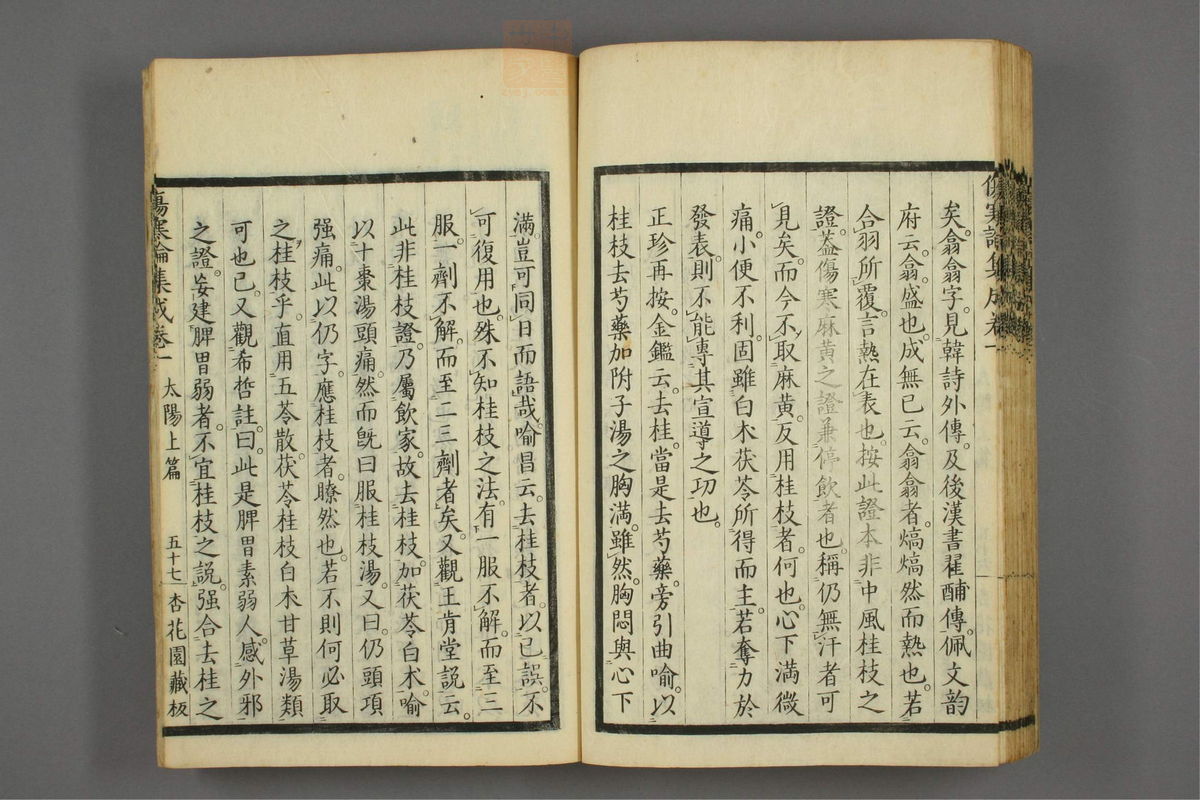 傷寒論集成卷一
矣。翕翕字。見韓詩外傳。及後漢書翟酺傳。佩文韵
府云。翕。盛也。成無已云。翕翕者。熇熇然而熱也。若
合羽所覆。言熱在表也。按此證本非中風桂枝之
證。蓋傷寒麻黃之證兼停飲者也。稱仍無汗者可
見矣。而今不取麻黃。反用桂枝者。何也。心下滿微
痛。小便不利。固雖白朮茯苓所得而主。若奪力於
發表。則不能專其宣導之功也。
正珍再按。金鑑云。去桂。當是去芍藥。旁引曲喻。以
桂枝去芍藥加附子湯之胸滿。雖然。胸悶與心下
滿。豈可同日而語哉。喻昌云。去桂枝者。以已誤不
可復用也。殊不知桂枝之法。有一服不解。而至三
服。一劑不解。而至二三劑者矣。又觀王肯堂說云。
此非桂枝證。乃屬飲家。故去桂枝。加茯苓白朮。喻
以十棗湯頭痛。然而旣曰服桂枝湯。又曰。仍頭項
强痛。此以仍字。應桂枝者。瞭然也。若不則何必取
之桂枝乎。直用五苓散。茯苓桂枝白朮甘草湯類
可也已。又觀希哲註曰。此是脾胃素弱人。感外邪
之證。妄建脾胃弱者。不宜桂枝之說。强合去桂之
傷寒論集成卷一 太陽上篇 五十七 杏花園藏板